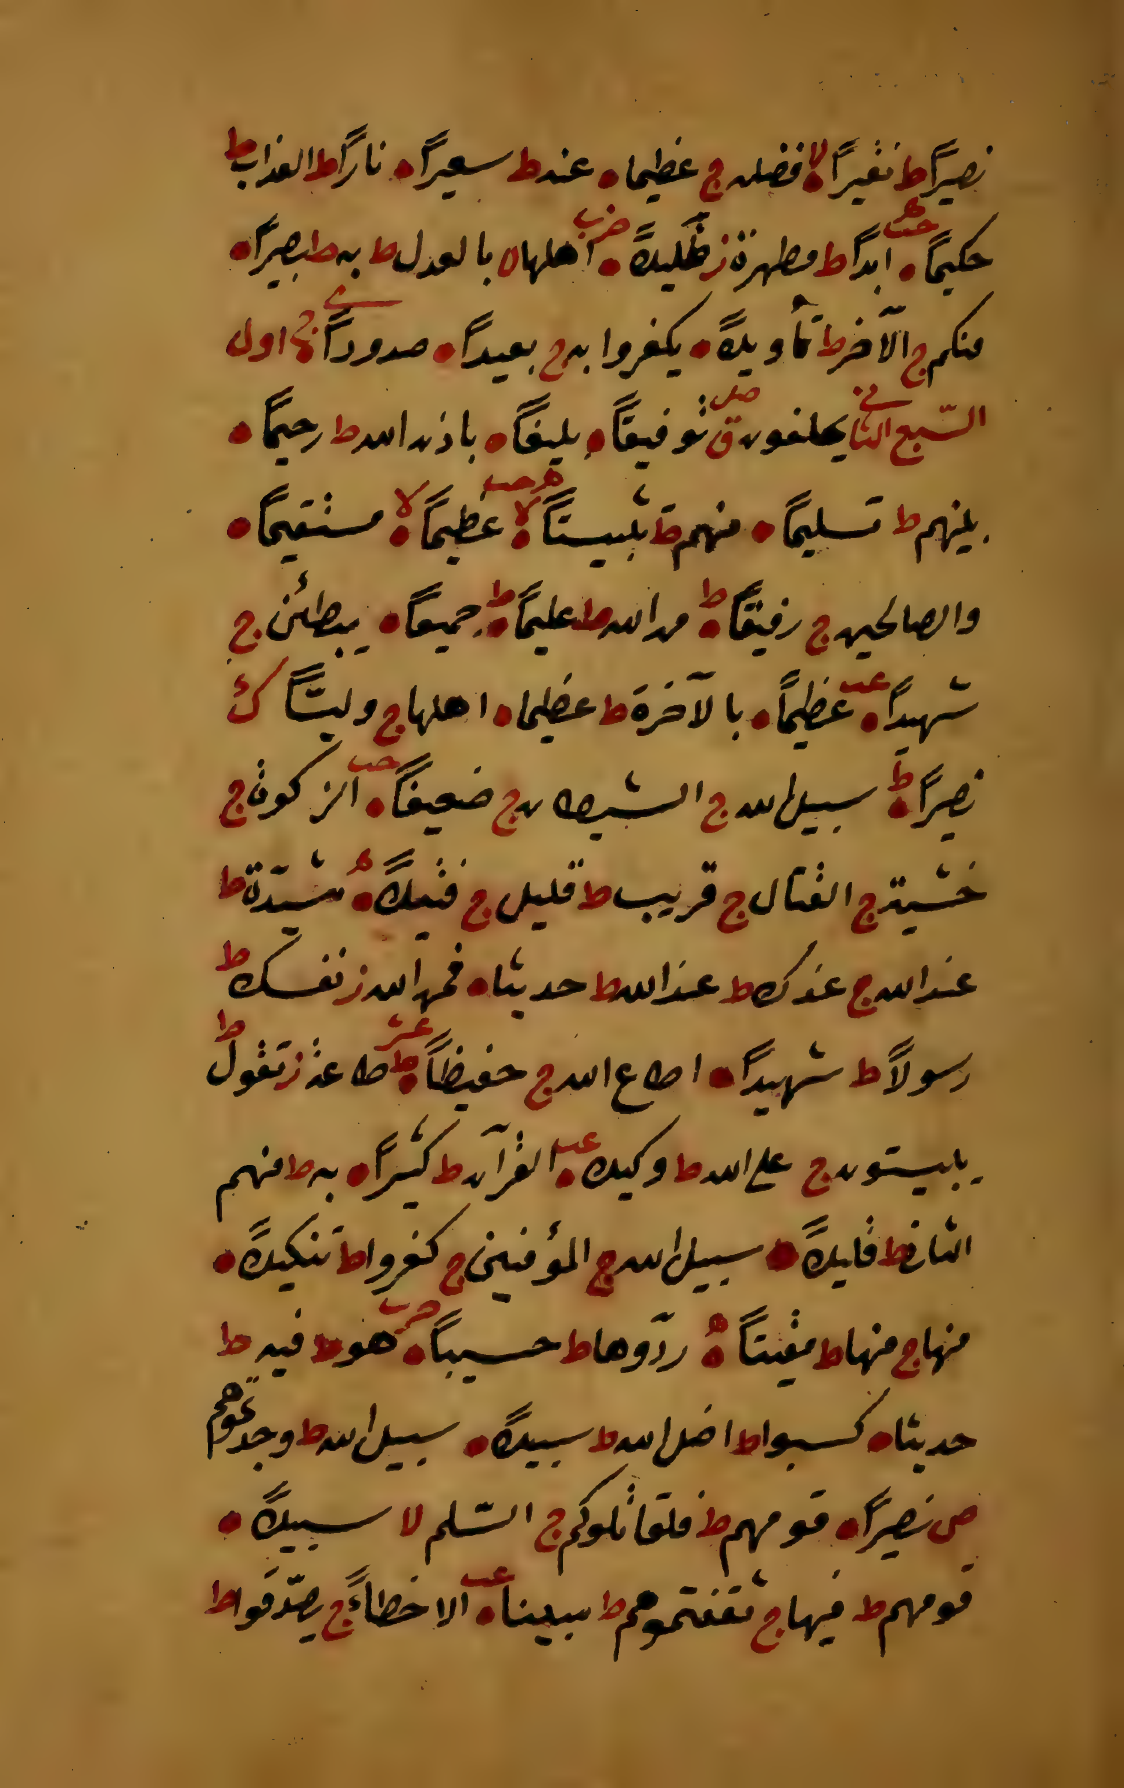 نصيرًا ط نقيرًا لا فضله ج عظيما عنه ط سعيرًا نارًا ط العذاب ط
حكيمًا ابدًا ط مطهرة ز ظليلًا اهلها لا بالعدل ط به ط بصيرًا
منكم ج الآخر ط تأويلًا يكفروا به ج بعيدًا صدودًا ج اول
السّبع الثاني يحلفون ق صل توفيقًا بليغًا باذن الله ط رحيمًا
بينهم ط تسليمًا منهم ط تثبيتًا لا عظيمًا لا مستقيمًا
والصالحين ج رفيقًا ط من الله ط عليمًا ط جميعًا ليبطئن ج
شهيدًا عظيمًا عب بالآخرة ط عظيما اهلها ج وليًّا ك
نصيرًا ط سبيل الله ج الشيطان ج ضعيفًا حب الزكوة ج
خشية ج القتال ج قريب ط قليل ج فتيلًا مشيّدة ط
عند الله ج عندك ط عند الله ط حديثا فمن الله ز نفسك ط
رسولًا ط شهيدًا اطاع الله ج حفيظًا ط عشر طاعة ز تقول ط
يبيتون ج على الله ط وكيلا عب القرآن ط كثيرًا به ط منهم
الناس ط قليلًا سبيل الله ج المؤمنين ج كفروا ط تنكيلًا
منها ج منها ط مقيتًا ردّوها ط حسيبًا حزب هو ط فيه ط
حديثا كسبوا ط اضل الله ط سبيلًا سبيل الله ط وجدتموهم
ص نصيرًا قومهم ط فلقاتلوكم ج السّلم لا سبيلًا
قومهم ط فيها ج ثقفتموهم ط مبينا عب الا خطاءً ج يصّدقوا ط